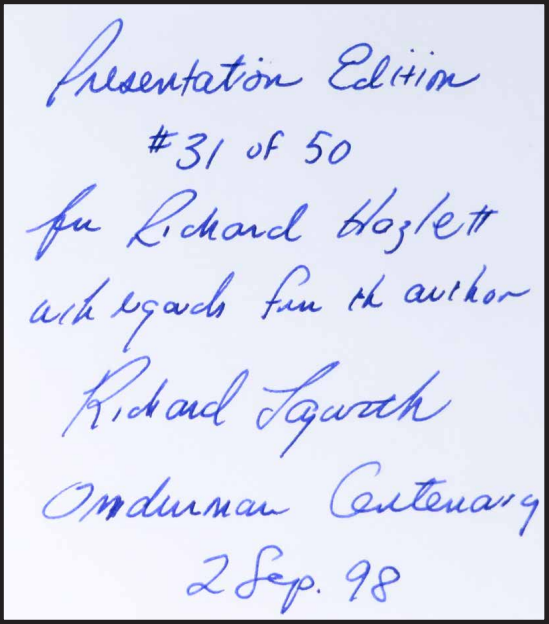 Presentation Edition
#31 of 50
for Richard Hazlett
with regards from the author
Richard Langworth
Omdurman Centenary
2 Sep. 98